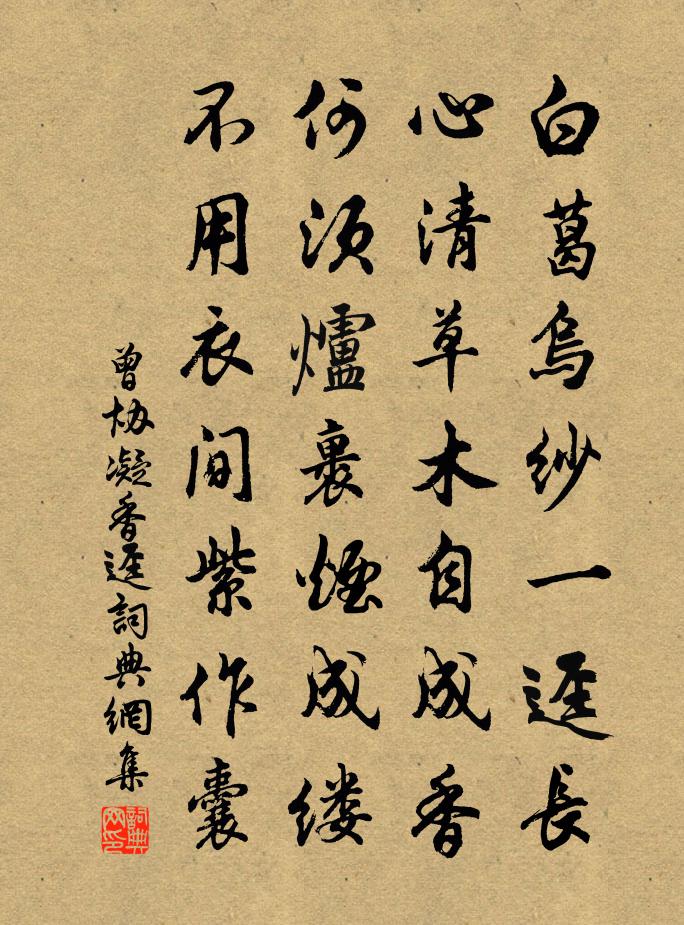 白葛烏紗一逕長
心清草木自成香
何須爐裹煙成缕
不用衣間紫作囊
曾协凝香逕詞典網集
詞典网印